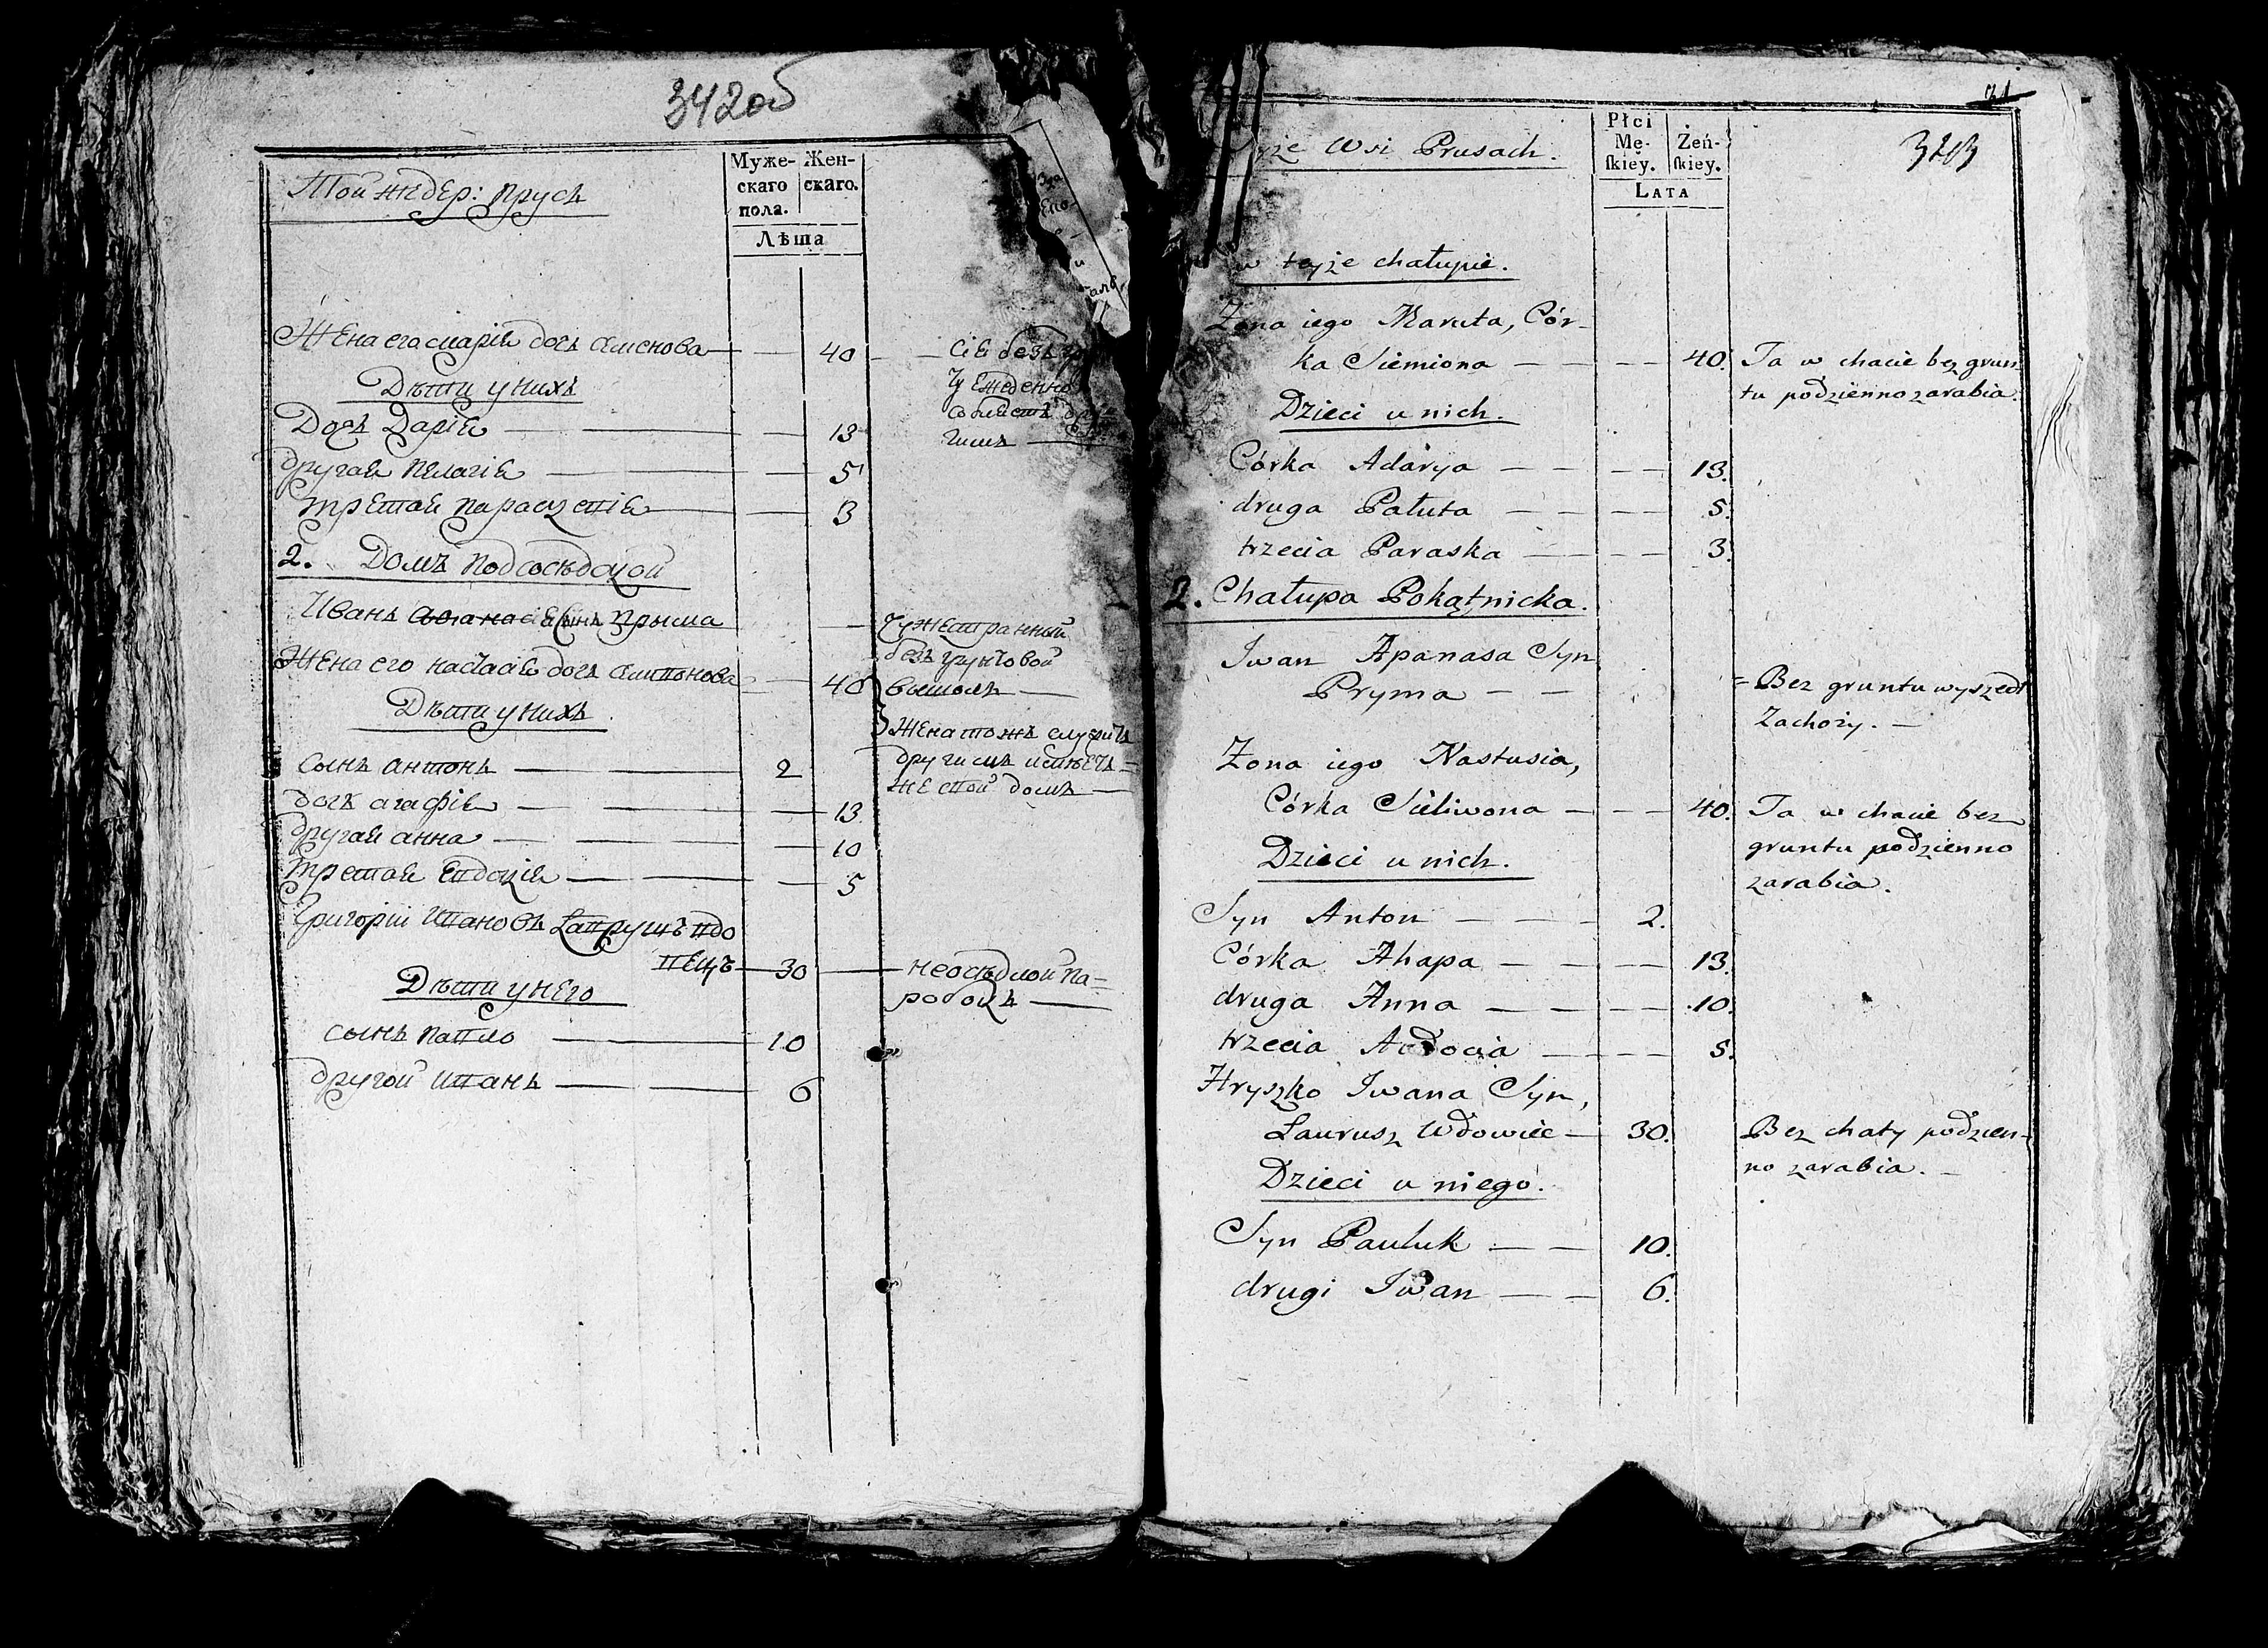 342об
Той же дер: Прусъ
Муже-
скаго
пола.
Жен-
скаго.
Лѣта
Жена его Марія дочь Семенова — — 40
Дѣти у нихъ
Дочь Дарія — — 13
другая Пелагія — — 5
третая Параскевія — — 3
Сія безъ
2. Домъ подсосѣдской
Иванъ Афанасіевъ сынъ Прыма
Чужестранный
безъ грунтовой
вышолъ —
Жена его Настасія дочь — 40
Дѣти у нихъ
Жена тожъ служитъ
другимъ
же той домъ —
сынъ Антонъ — — 2
дочь Агафія — — 13
другая Анна — — 10
третая Евдокія — — 5
Григорій Ивановъ Лаврушъ вдо
вецъ — 30 — неосѣдлой па=
робокъ —
Дѣти у него
сынъ Павло — 10
другой Иванъ — — 6
Wsi Prusach.
Płci
Mę-
skiey.
Żeń-
skiey.
LATA
w teyże chałupie.
Żona iego Maruta, Cór-
ka Siemiona — — — 40. Ta w chacie bez grun-
tu podzienno zarabia.
Dzieci u nich.
Córka Adarya — — — — 13.
druga Pałuta — — — — 5.
trzecia Paraska — — — 3.
2. Chałupa Pokątnicka.
Iwan Apanasa Syn
Pryma — — = Bez gruntu wyszedł
Zachoży. —
Żona iego Nastusia,
Córka Sieliwona — — — 40. Ta w chacie bez
gruntu podzienno
zarabia.
Dzieci u nich.
Syn Anton — — — 2.
Córka Ahapa — — — — 13.
druga Anna — — — — 10.
trzecia Audocia — — — 5.
Hryszko Iwana Syn,
Laurusz Wdowiec — 30. Bez chaty podzien-
no zarabia. —
Dzieci u niego.
Syn Pauluk — — 10.
drugi Iwan — — 6.